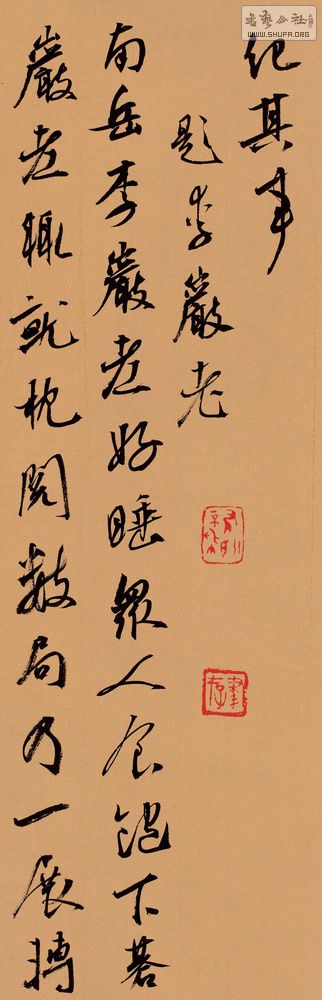 紀其事
題李巖老
南岳李巖老好睡衆人食飽下碁
巖老輒就枕閱數局乃一展轉
書法公社
WWW.SHUFA.ORG